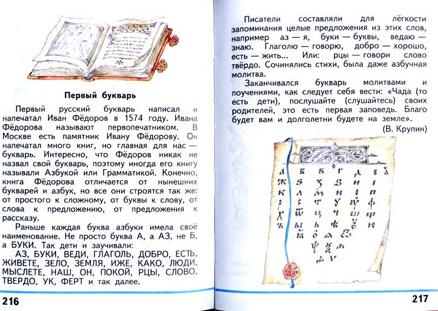 Первый букварь
Первый русский букварь написал и
напечатал Иван Фёдоров в 1574 году. Ивана
Фёдорова называют первопечатником. В
Москве есть памятник Ивану Фёдорову. Он
напечатал много книг, но главная для нас —
букварь. Интересно, что Фёдоров никак не
назвал свой букварь, поэтому иногда его книгу
называют Азбукой или Грамматикой. Конечно,
книга Фёдорова отличается от нынешних
букварей и азбук, но все они строятся так же:
от простого к сложному, от буквы к слову, от
слова к предложению, от предложения к
рассказу.
Раньше каждая буква азбуки имела своё
наименование. Не просто буква А, а АЗ, не Б,
а БУКИ. Так дети и заучивали:
АЗ, БУКИ, ВЕДИ, ГЛАГОЛЬ, ДОБРО, ЕСТЬ,
ЖИВЕТЕ, ЗЕЛО, ЗЕМЛЯ, ИЖЕ, КАКО, ЛЮДИ,
МЫСЛЕТЕ, НАШ, ОН, ПОКОЙ, РЦЫ, СЛОВО,
ТВЕРДО, УК, ФЕРТ и так далее.
216
Писатели составляли для лёгкости
запоминания целые предложения из этих слов,
например аз — я, буки — буквы, ведаю —
знаю. Глаголю — говорю, добро — хорошо,
есть — жить... Или: рцы — говори слово
твёрдо. Сочинялись стихи, была даже азбучная
молитва.
Заканчивался букварь молитвами и
поучениями, как следует себя вести: «Чада (то
есть дети), послушайте (слушайтесь) своих
родителей, это есть первая заповедь. Благо
будет вам и долголетни будете на земле».
(В. Крупин)
217